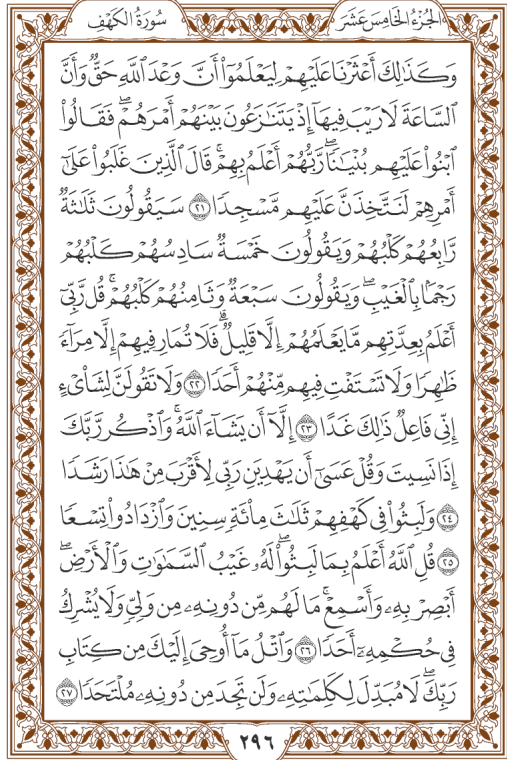 سُورَةُ الكَهۡفِ
الجُزۡءُ الخَامِسَ عَشَرَ
وَكَذَٰلِكَ أَعۡثَرۡنَا عَلَيۡهِمۡ لِيَعۡلَمُوٓاْ أَنَّ وَعۡدَ ٱللَّهِ حَقّٞ وَأَنَّ
ٱلسَّاعَةَ لَا رَيۡبَ فِيهَآ إِذۡ يَتَنَٰزَعُونَ بَيۡنَهُمۡ أَمۡرَهُمۡۖ فَقَالُواْ
ٱبۡنُواْ عَلَيۡهِم بُنۡيَٰنٗاۖ رَّبُّهُمۡ أَعۡلَمُ بِهِمۡۚ قَالَ ٱلَّذِينَ غَلَبُواْ عَلَىٰٓ
أَمۡرِهِمۡ لَنَتَّخِذَنَّ عَلَيۡهِم مَّسۡجِدٗا ٢١ سَيَقُولُونَ ثَلَٰثَةٞ
رَّابِعُهُمۡ كَلۡبُهُمۡ وَيَقُولُونَ خَمۡسَةٞ سَادِسُهُمۡ كَلۡبُهُمۡ
رَجۡمَۢا بِٱلۡغَيۡبِۖ وَيَقُولُونَ سَبۡعَةٞ وَثَامِنُهُمۡ كَلۡبُهُمۡۚ قُل رَّبِّيٓ
أَعۡلَمُ بِعِدَّتِهِم مَّا يَعۡلَمُهُمۡ إِلَّا قَلِيلٞۗ فَلَا تُمَارِ فِيهِمۡ إِلَّا مِرَآءٗ
ظَٰهِرٗا وَلَا تَسۡتَفۡتِ فِيهِم مِّنۡهُمۡ أَحَدٗا ٢٢ وَلَا تَقُولَنَّ لِشَاْيۡءٍ
إِنِّي فَاعِلٞ ذَٰلِكَ غَدًا ٢٣ إِلَّآ أَن يَشَآءَ ٱللَّهُۚ وَٱذۡكُر رَّبَّكَ
إِذَا نَسِيتَ وَقُلۡ عَسَىٰٓ أَن يَهۡدِيَنِ رَبِّي لِأَقۡرَبَ مِنۡ هَٰذَا رَشَدٗا
٢٤ وَلَبِثُواْ فِي كَهۡفِهِمۡ ثَلَٰثَ مِاْئَةٖ سِنِينَ وَٱزۡدَادُواْ تِسۡعٗا
٢٥ قُلِ ٱللَّهُ أَعۡلَمُ بِمَا لَبِثُواْۖ لَهُۥ غَيۡبُ ٱلسَّمَٰوَٰتِ وَٱلۡأَرۡضِۖ
أَبۡصِرۡ بِهِۦ وَأَسۡمِعۡۚ مَا لَهُم مِّن دُونِهِۦ مِن وَلِيّٖ وَلَا يُشۡرِكُ
فِي حُكۡمِهِۦٓ أَحَدٗا ٢٦ وَٱتۡلُ مَآ أُوحِيَ إِلَيۡكَ مِن كِتَابِ
رَبِّكَۖ لَا مُبَدِّلَ لِكَلِمَٰتِهِۦ وَلَن تَجِدَ مِن دُونِهِۦ مُلۡتَحَدٗا ٢٧
٢٩٦